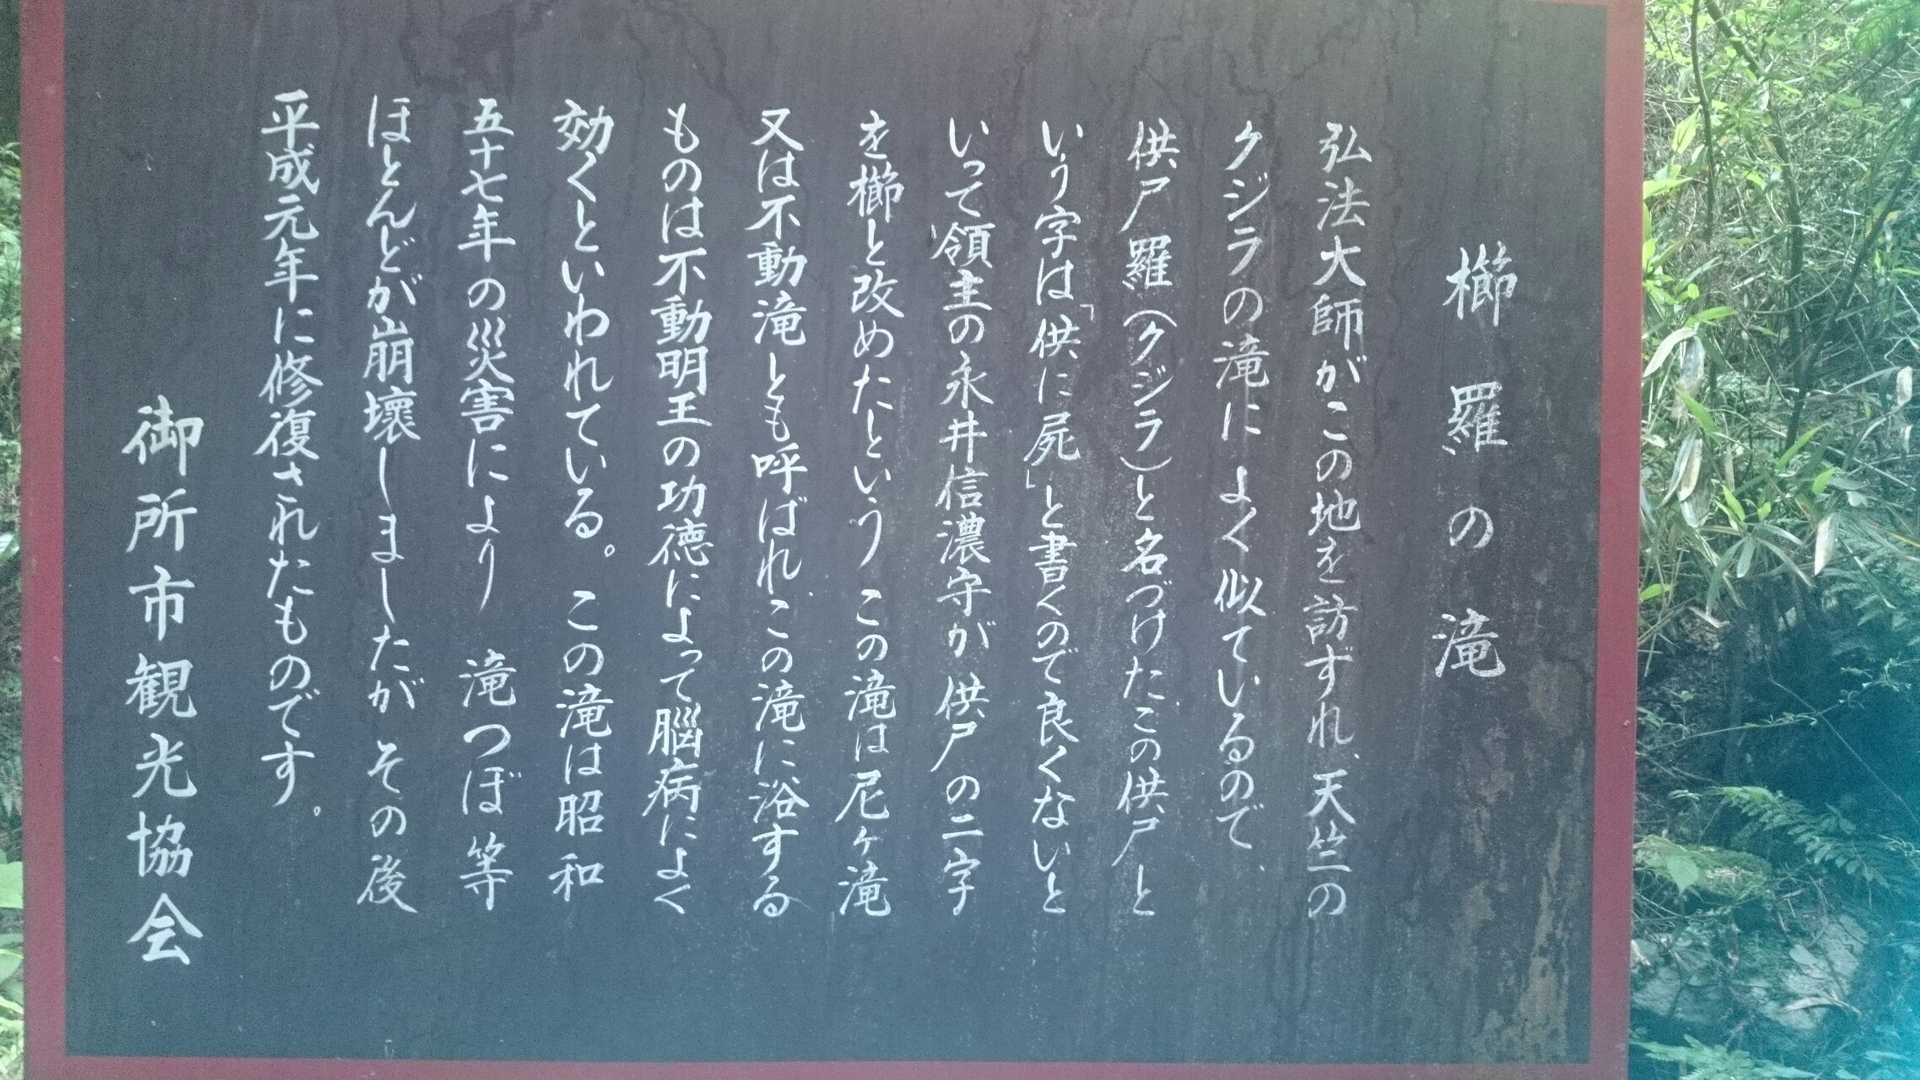 櫛羅の滝
弘法大師がこの地を訪ずれ、天竺の
クジラの滝によく似ているので、
供尸羅(クジラ)と名づけたこの供尸と
いう字は「供に屍」と書くので良くないと
いって領主の永井信濃守が供尸の二字
を櫛と改めたという この滝は尼ヶ滝
又は不動滝とも呼ばれこの滝に浴する
ものは不動明王の功徳によって脳病によく
効くといわれている。この滝は昭和
五十七年の災害により 滝つぼ等
ほとんどが崩壊しましたが その後
平成元年に修復されたものです。
御所市観光協会